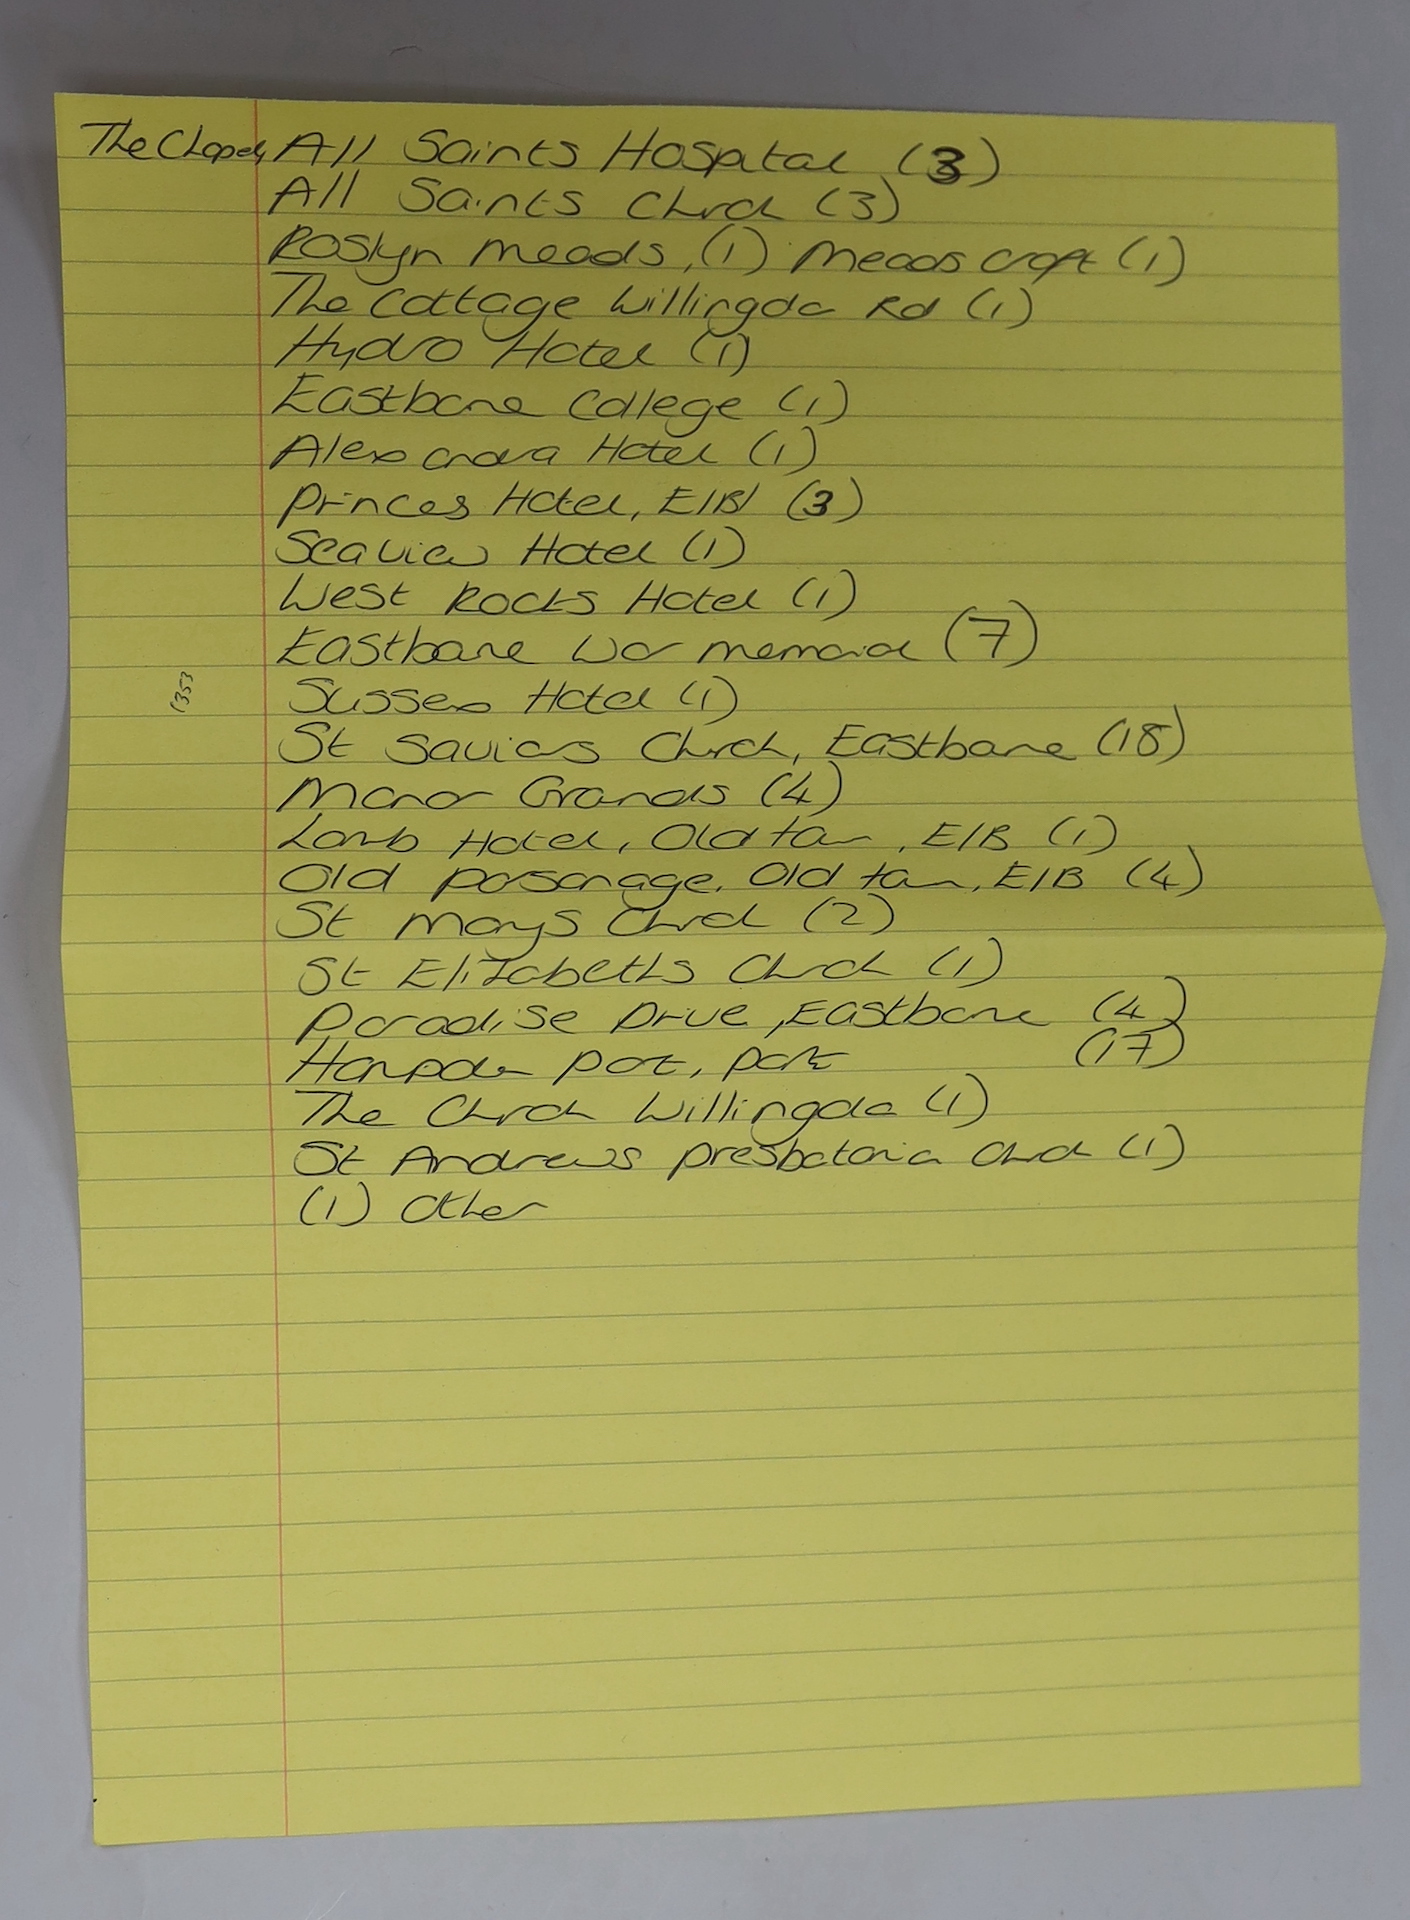 The Chapel, All Saints Hospital (3)
All Saints Church (3)
Roslyn Meads, (1) Meads croft (1)
The Cottage Willingdon Rd (1)
Hydro Hotel (1)
Eastbourne College (1)
Alexandra Hotel (1)
Princes Hotel, E/B/ (3)
Seaview Hotel (1)
West Rocks Hotel (1)
Eastbourne War memorial (7)
Sussex Hotel (1)
St Saviours Church, Eastbourne (18)
Manor Grounds (4)
Lamb Hotel, Old town, E/B (1)
Old parsonage, Old town, E/B (4)
St Marys Church (2)
St Elizabeths Church (1)
Paradise Drive, Eastbourne (4)
Hampden Park, park (17)
The Church Willingdon (1)
St Andrews presbaterian Church (1)
(1) Other